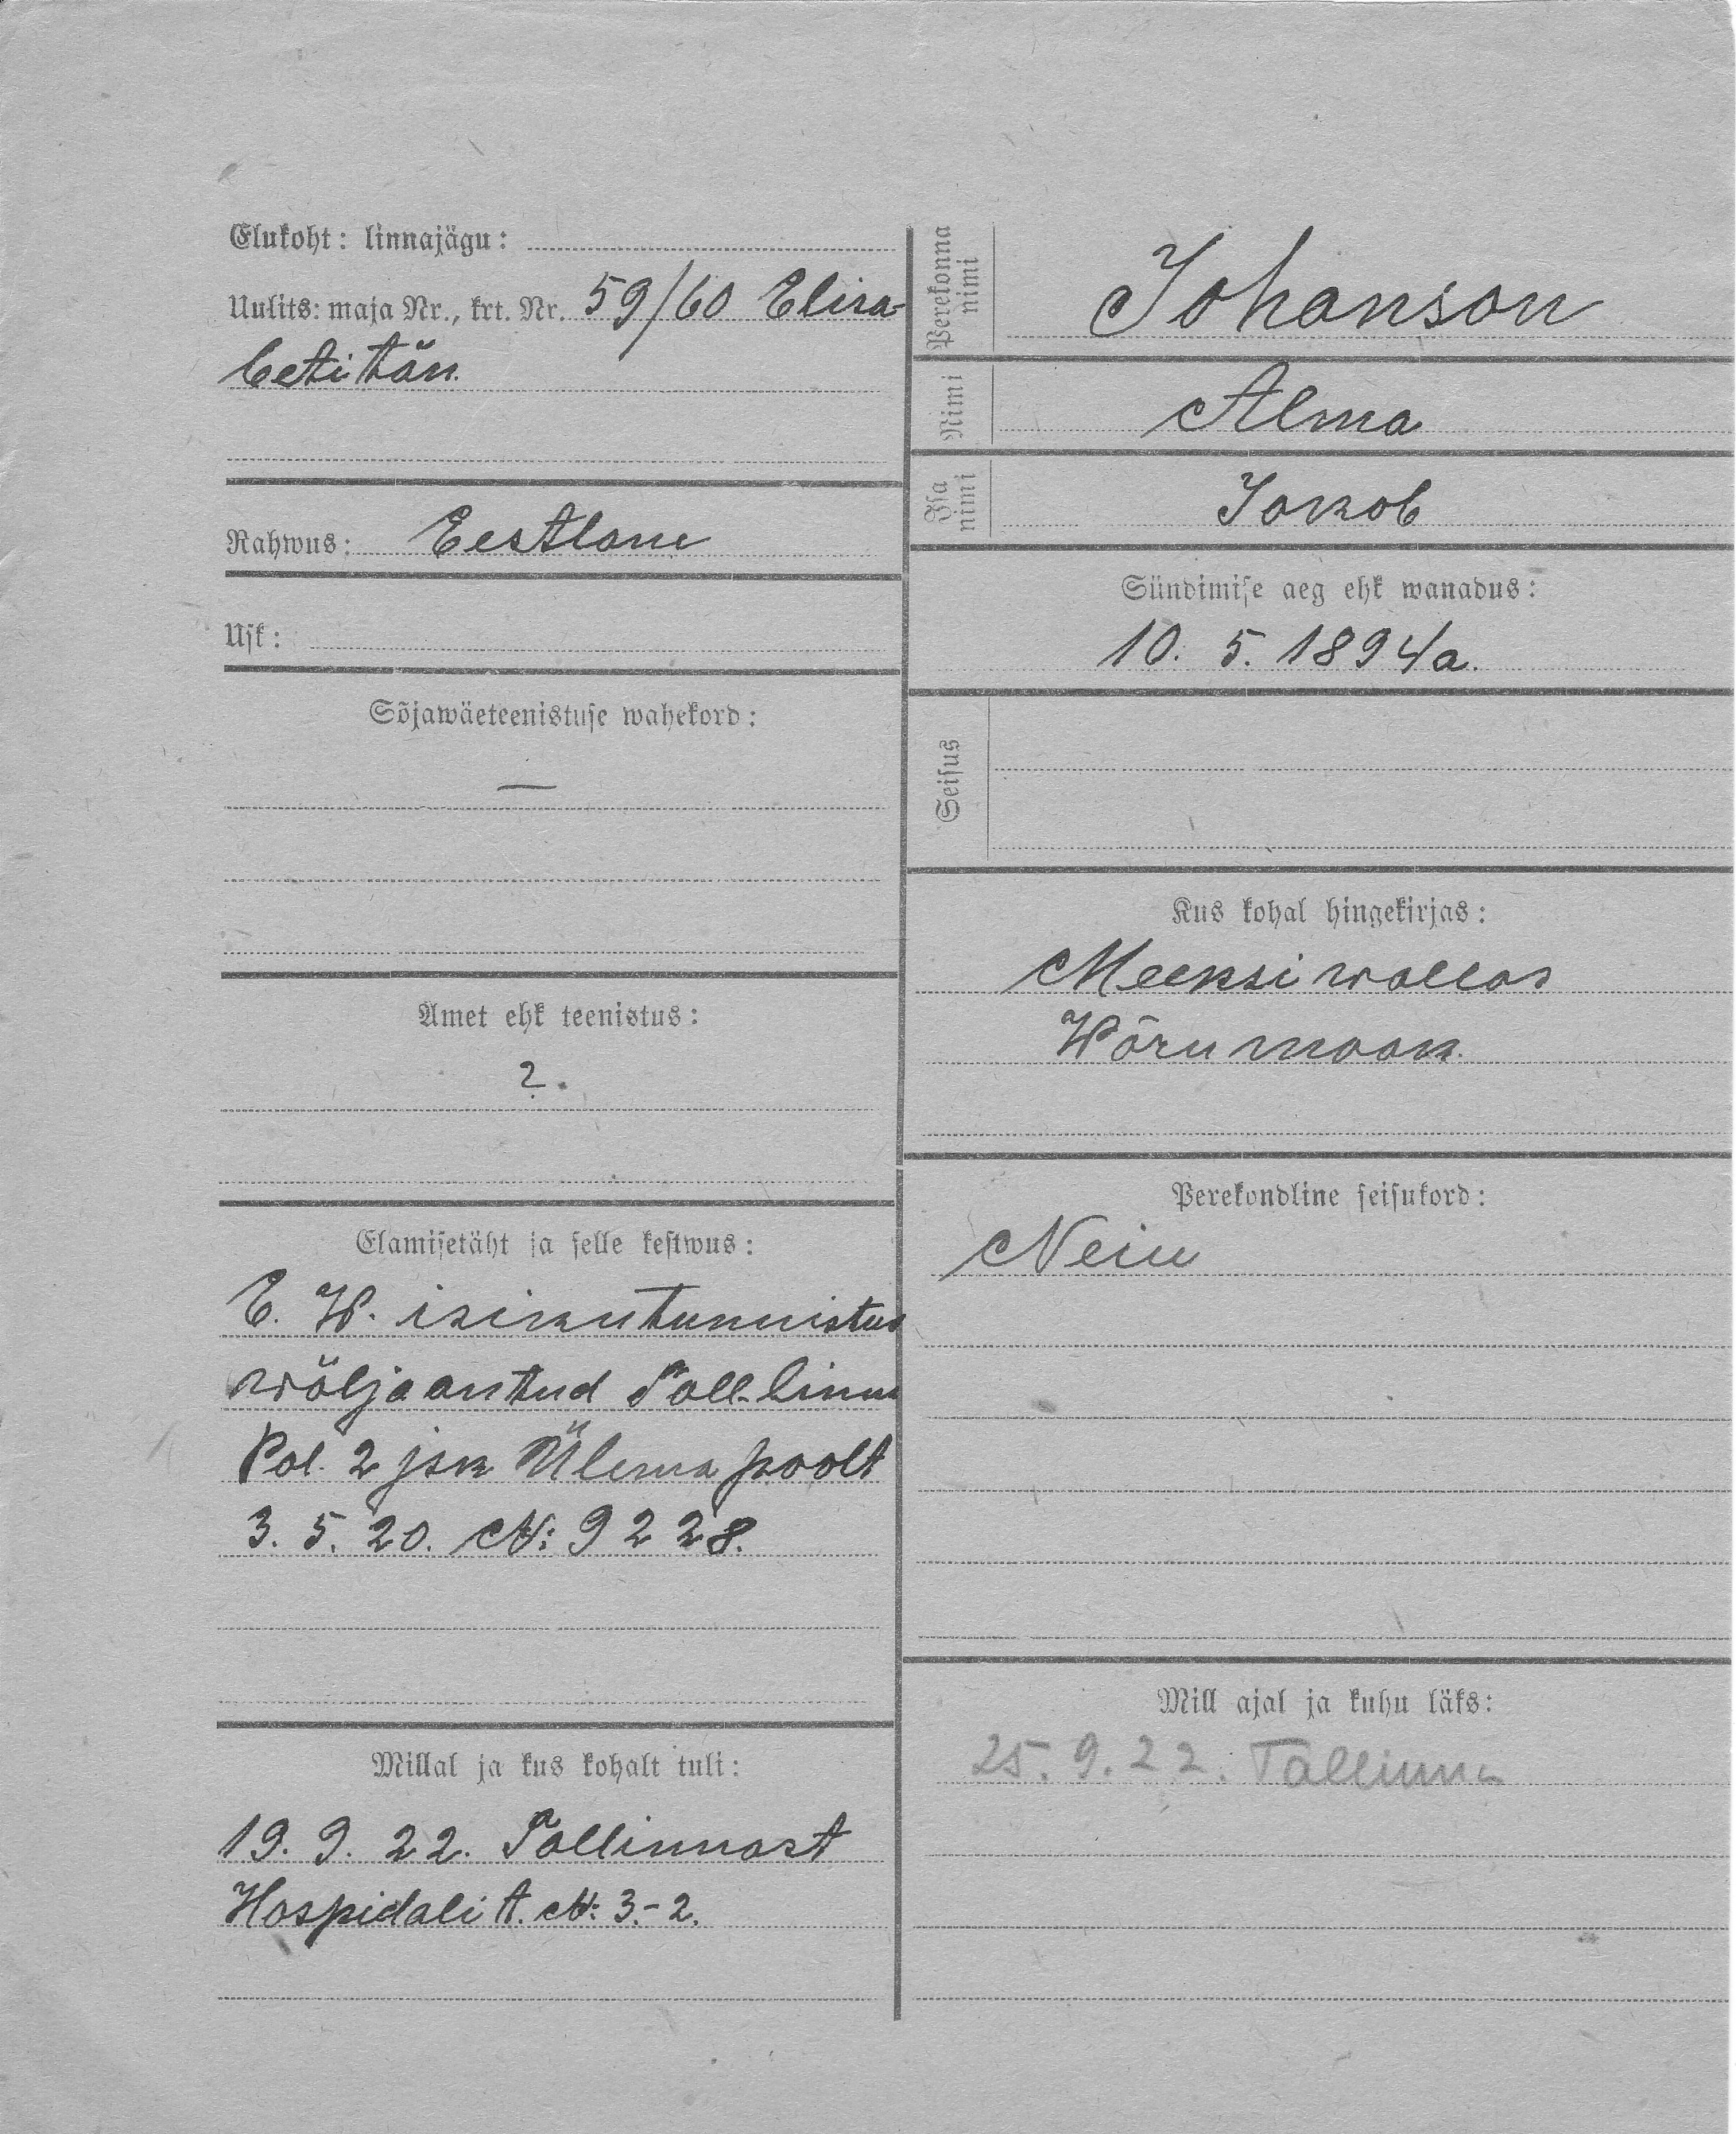 Elukoht: linnajägu:
Uulits: maja Nr., krt. Nr. 59/60 Elisa-
beti tän.
Rahwus: Eestlane
Usk:
Sõjawäeteenistuse wahekord:
—
Amet ehk teenistus:
?.
Elamisetäht ja selle kestwus:
E. W. isikutunnistus
wäljaantud Tall-linna
Pol. 2 jsk Ülema poolt
3. 5. 20. №: 9228.
Millal ja kus kohalt tuli:
19. 9. 22. Tallinnast
Hospidali t. №: 3.-2.
Perekonna
nimi
Johanson
Nimi
Alma
Isa
nimi
Jakob
Sündimise aeg ehk wanadus:
10. 5. 1894 a.
Seisus
Kus kohal hingekirjas:
Meeksi wallas
Wõru maak.
Perekondline seisukord:
Neiu
Mill ajal ja kuhu läks:
25. 9. 22. Tallinna